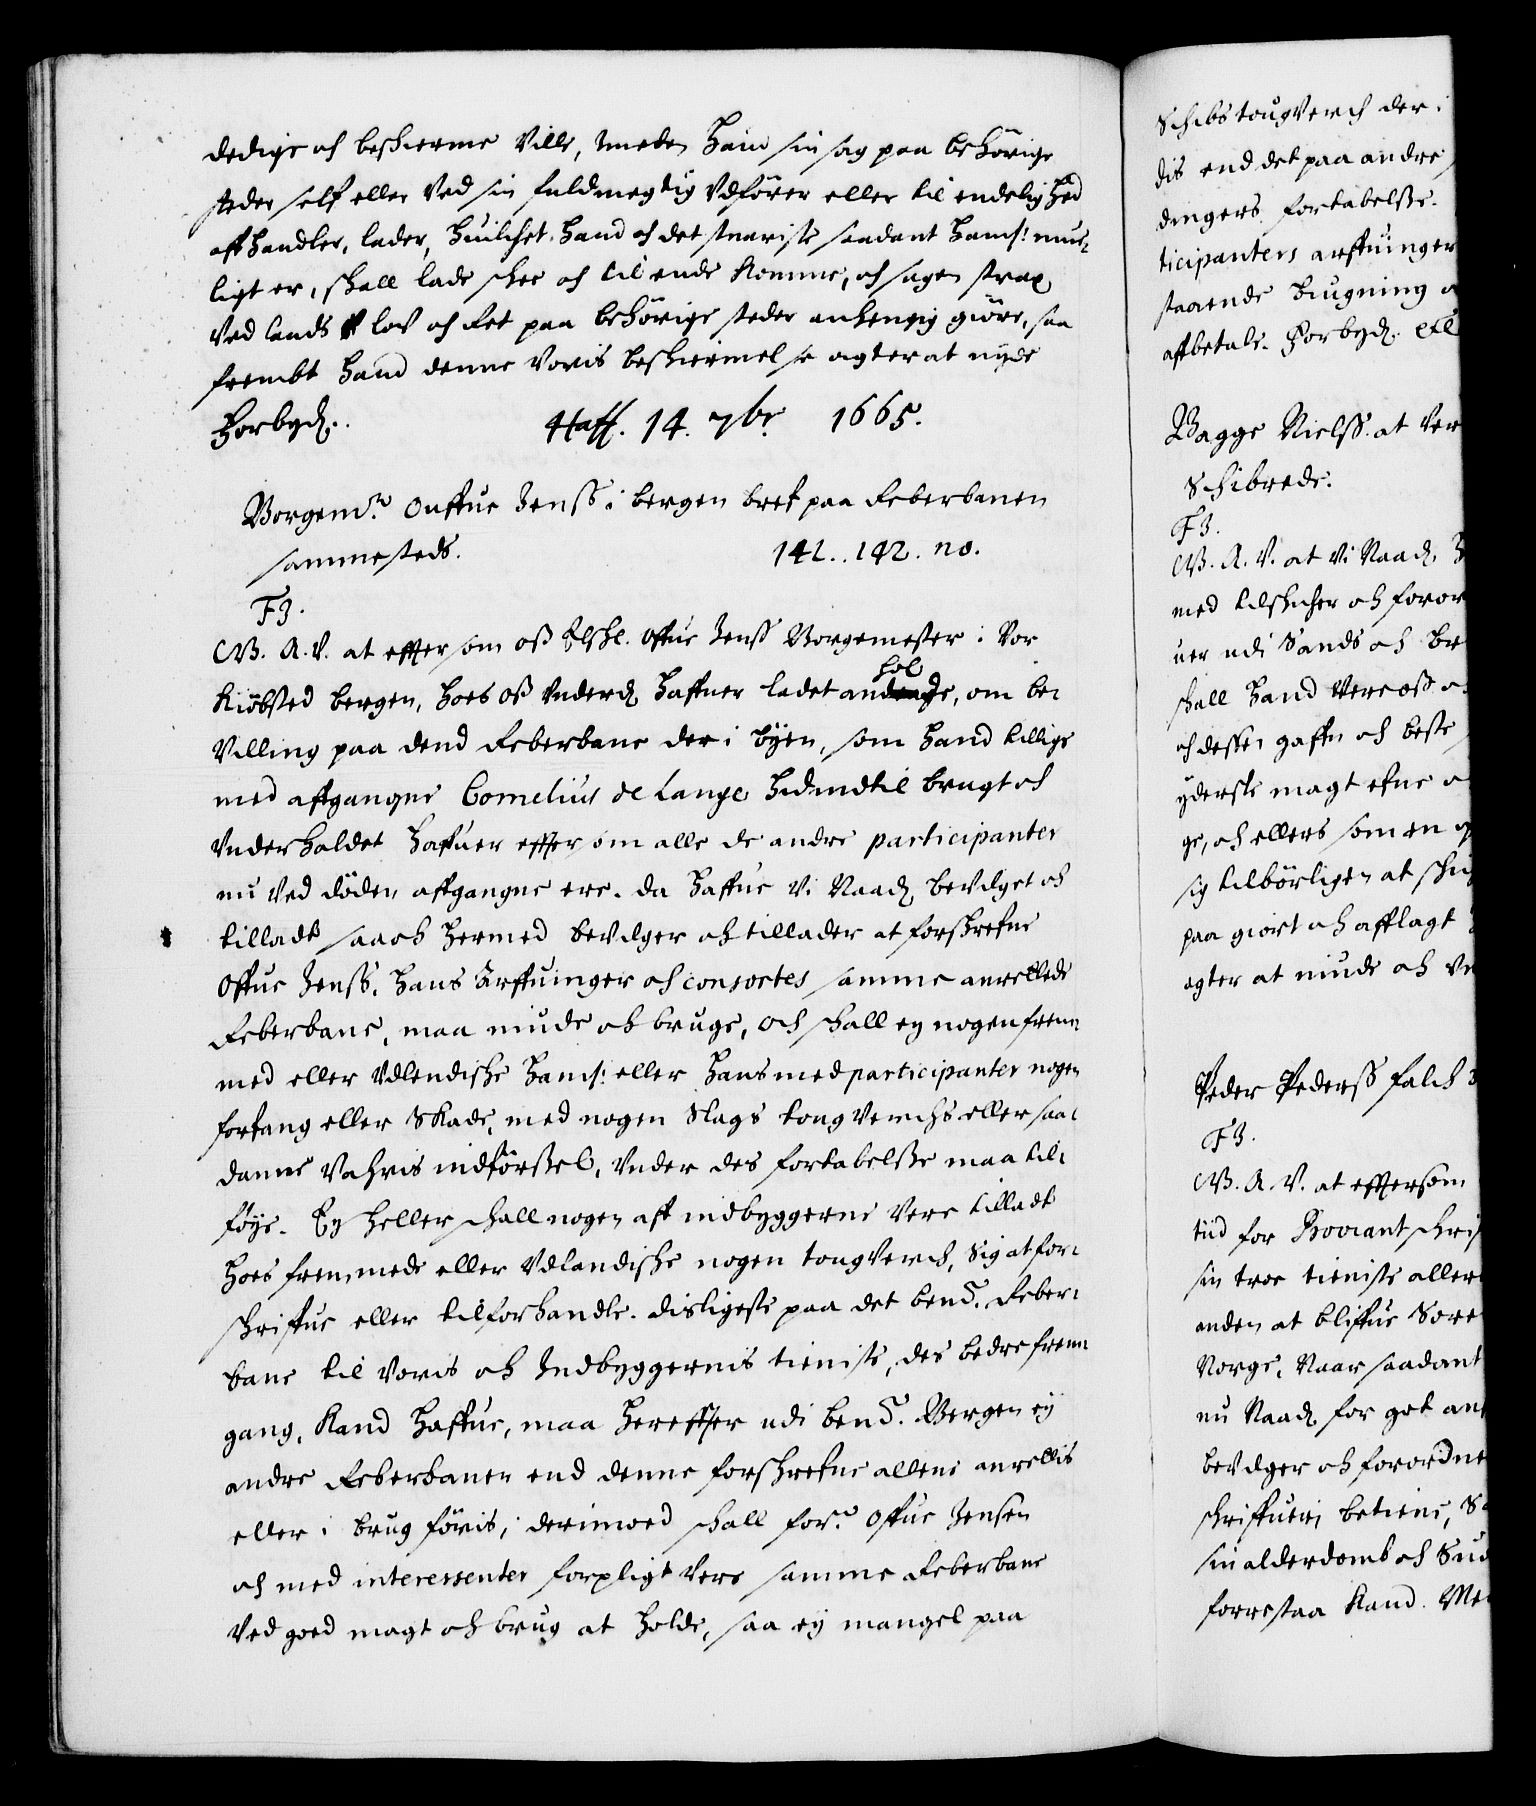 dedige och beskierme Ville, imeden Hand sin sag paa behörige
steder self eller Ved sin fuldmegtig Vdförer eller til endelighed
affhandler, lader, huilchet hand och det snariste saadant hans: mue¬
ligt er, skall lade skee och til ende komme, och sagen strax
Ved Lands lov och Ret paa behörige steder anhengig giöre, saa
frembt Hand denne Voris beskiermelse agter at nyde
Forbyd. Haff. 14. 7br. 1665.
Borgemr. Ouffue Jenss. i bergen bref paa Reberbanen
sammesteds. 141. 142. no.
F3.
C V. A. V. at effter som oss Elskl. Offue Jenss Borgemester i Vor
kiöbsted bergen, hoes oss Vnderd. haffuer ladet anholde, om be¬
Villing paa dend Reberbane der i byen, som Hand tillige
med affgangne Cornelius de Lange hidindtil brugt och
Vnderholdet haffuer effter som alle de andre participanter
nu Ved döden affgangne ere. da haffue Vi Naad. bevilget och
tilladt saa och hermed bevilger och tillader at forskrefne
Offue Jenss. hans Arffuinger och consortes samme anrettede
Reberbane, maa niude och bruge, och skall ey nogen frem¬
med eller Vdlendiske hans: eller hans medparticipanter nogen
fortang eller Skade, med nogen Slags tougVerchs eller saa¬
danne Vahris indförssel, Vnder des fortabelsse maa til¬
föye. Ey heller skall nogen aff indbyggerne Vere tilladt
hoes fremmede eller Vdlandiske nogen tougVerch, Sig at for¬
skriffue eller tilforhandle. disligeste paa det bend. Reber¬
bane til Voris och Indbyggernis tieniste, des bedre frem
gang, kand haffue, maa hereffter udi bend. Bergen ey
andre Reberbaner end denne forskrefne allene anrettis
eller i brug föris, derimoed skall for: Offue Jensen
och med interessenter forpligt Vere samme Reberbane
Ved goed magt och brug at holde, saa ey mangel paa
Schibs tougVerch der i
dis end det paa andre
dingers fortabelsse.
ticipanters arffuinger
staaende bingning
affbetale. Forbyd.
Bagge Nielss. at Ver
Schibrede.
F3.
C V. A. V. at Vi Naad.
med tilskicher och foror
uer udi Sands och Br
skall Hand Vere oss
och dessen gaffn och beste
yderste magt efne
ge, och ellers som en
sig tilbörligen at ski
paa giort och afflagt
agter at niude och
Peder Pederss falch
F3.
C V. A. V. at effter som
tiid for skri
sin troe tieniste aller
anden at bliffue Sore
Norge, Naar saadant
nu Naad. for got an
bevilger och forordne
skriffueri betiene,
sin alderdomb och
forrestaa kand.